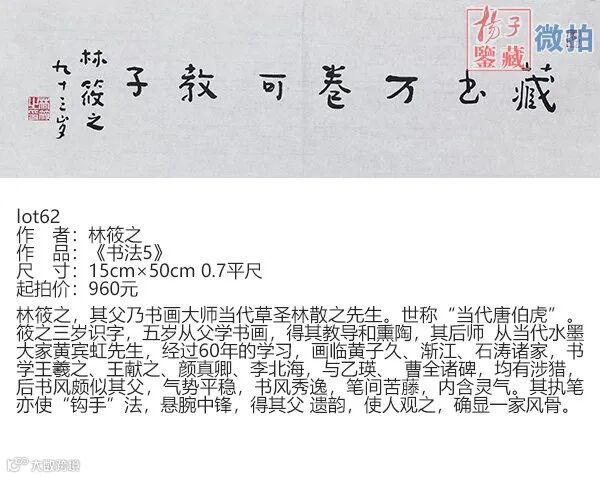 扬子
鉴藏
微拍
藏书万卷可教子
林筱之
九十三岁
lot62
作 者：林筱之
作 品：《书法5》
尺 寸：15cm×50cm 0.7平尺
起拍价：960元
林筱之，其父乃书画大师当代草圣林散之先生。世称“当代唐伯虎”。
筱之三岁识字，五岁从父学书画，得其教导和熏陶，其后师 从当代水墨
大家黄宾虹先生，经过60年的学习，画临黄子久、渐江、石涛诸家，书
学王羲之、王献之、颜真卿、李北海，与乙瑛、 曹全诸碑，均有涉猎，
后书风颇似其父，气势平稳，书风秀逸，笔间苦藤，内含灵气。其执笔
亦使“钩手”法，悬腕中锋，得其父 遗韵，使人观之，确显一家风骨。
大歐跨境